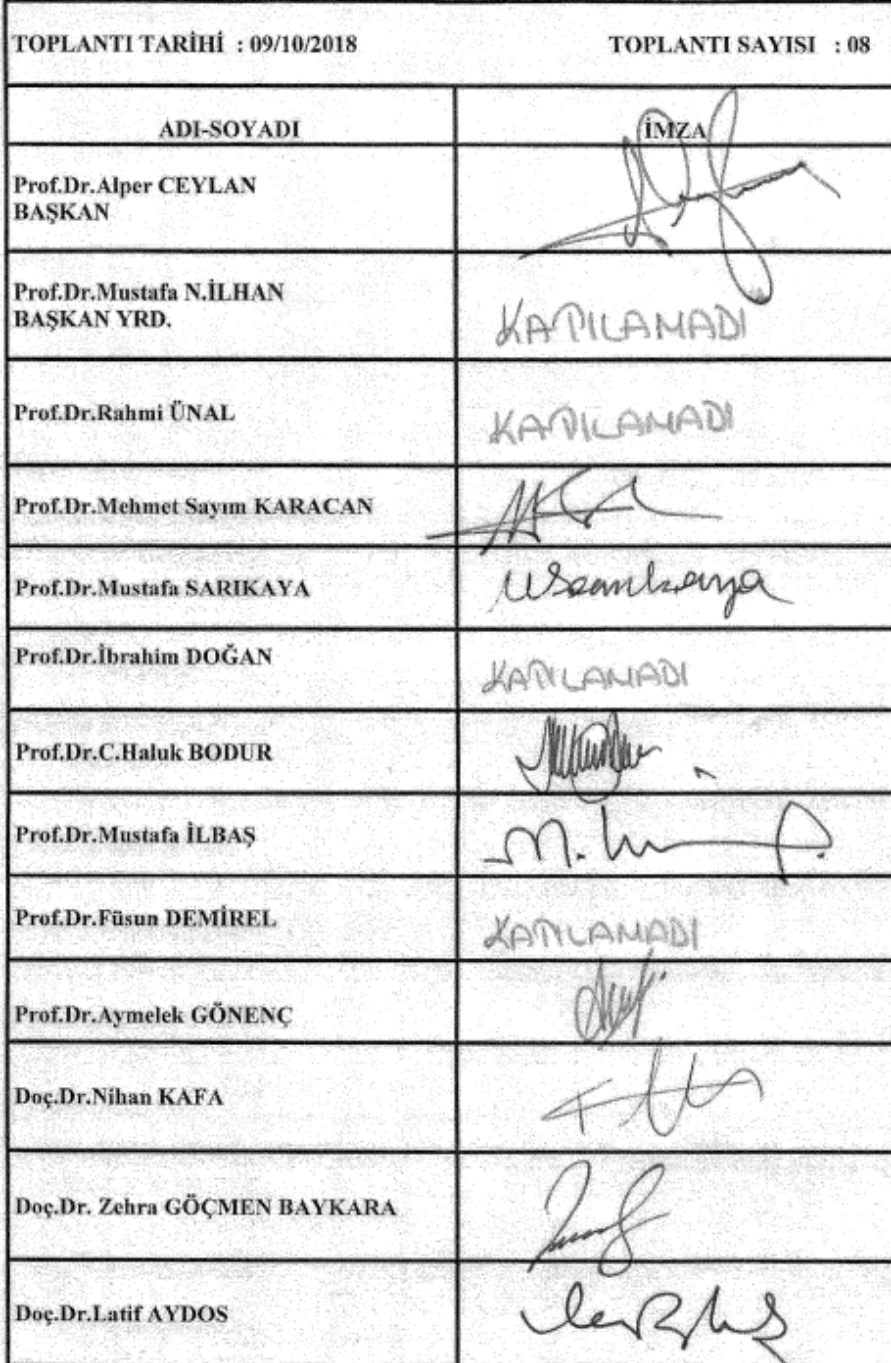 TOPLANTI TARİHİ : 09/10/2018 TOPLANTI SAYISI : 08
ADI-SOYADI İMZA
Prof.Dr.Alper CEYLAN
BAŞKAN
Prof.Dr.Mustafa N.İLHAN
BAŞKAN YRD.
KATILAMADI
Prof.Dr.Rahmi ÜNAL
KATILAMADI
Prof.Dr.Mehmet Sayım KARACAN
Prof.Dr.Mustafa SARIKAYA
Prof.Dr.İbrahim DOĞAN
KATILAMADI
Prof.Dr.C.Haluk BODUR
Prof.Dr.Mustafa İLBAŞ
Prof.Dr.Füsun DEMİREL
KATILAMADI
Prof.Dr.Aymelek GÖNENÇ
Doç.Dr.Nihan KAFA
Doç.Dr. Zehra GÖÇMEN BAYKARA
Doç.Dr.Latif AYDOS